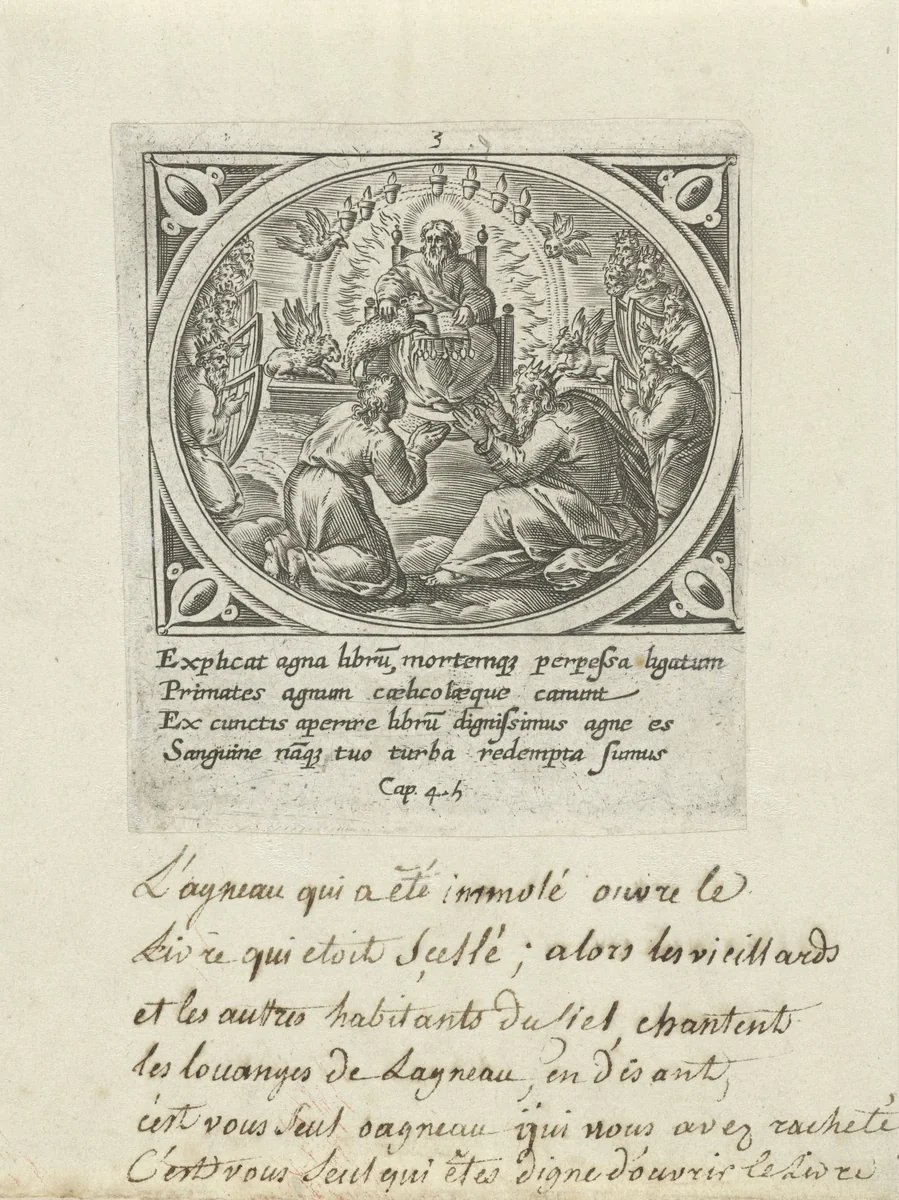 3
Explicat agna librũ, mortemqȝ perpeſsa ligatum
Primates agnum cælicolæque canunt
Ex cunctis aperire librũ digniſsimus agne es
Sanguine nãqȝ tuo turba redempta ſumus
Cap. 4. 5
L'agneau qui a été immolé ouvre le
Livre qui etoit Sçellé ; alors les vieillards
et les auttres habitants du Siel, chantent
les louanges de Lagneau, en disant,
c'est vous Seul oagneau qui nous avez racheté
C'est vous Seul qui êtes digne d'ouvrir le Livre